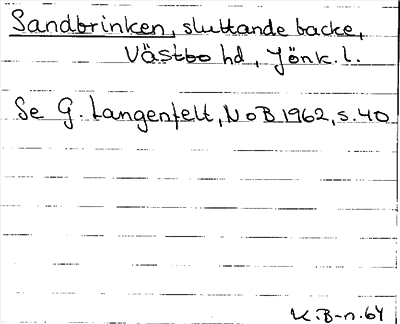 Sandbrinken, sluttande backe,
Västbo hd, Jönk. l.
Se G. Langenfelt, NoB 1962, s. 40
K.B-n. 64